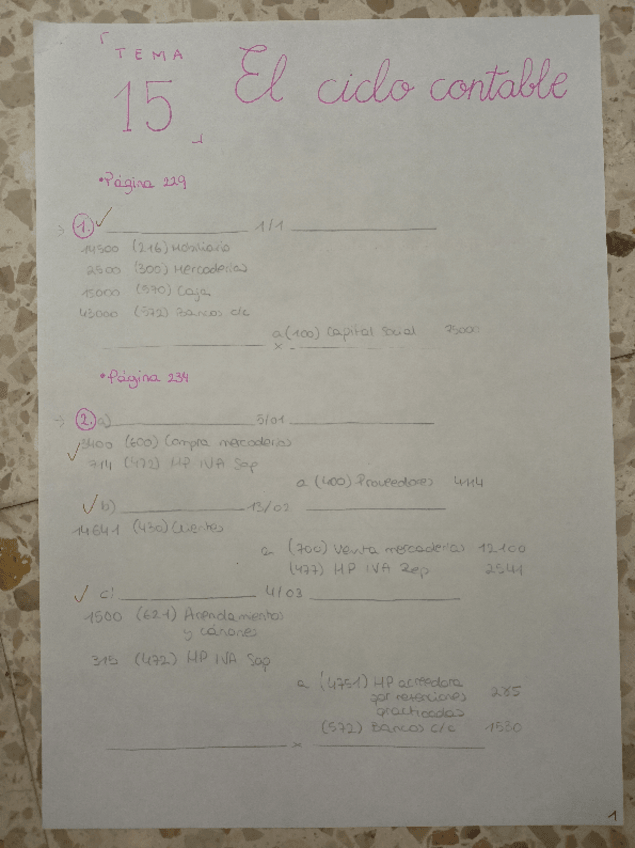 TEMA
15
El ciclo contable
•Página 229
1. 1/1
14500 (216) Mobiliario
2500 (300) Mercaderías
15000 (570) Caja
43000 (572) Bancos c/c
a (100) Capital Social 75000
x
•Página 234
2. a) 5/01
3400 (600) Compra mercaderías
714 (472) HP IVA Sop
a (400) Proveedores 4114
b) 13/02
14641 (430) Clientes
a (700) Venta mercaderías 12100
(477) HP IVA Rep 2541
c) 4/03
1500 (621) Arrendamientos
y cánones
315 (472) HP IVA Sop
a (4751) HP acreedora
por retenciones 285
practicadas
(572) Bancos c/c 1530
x
1